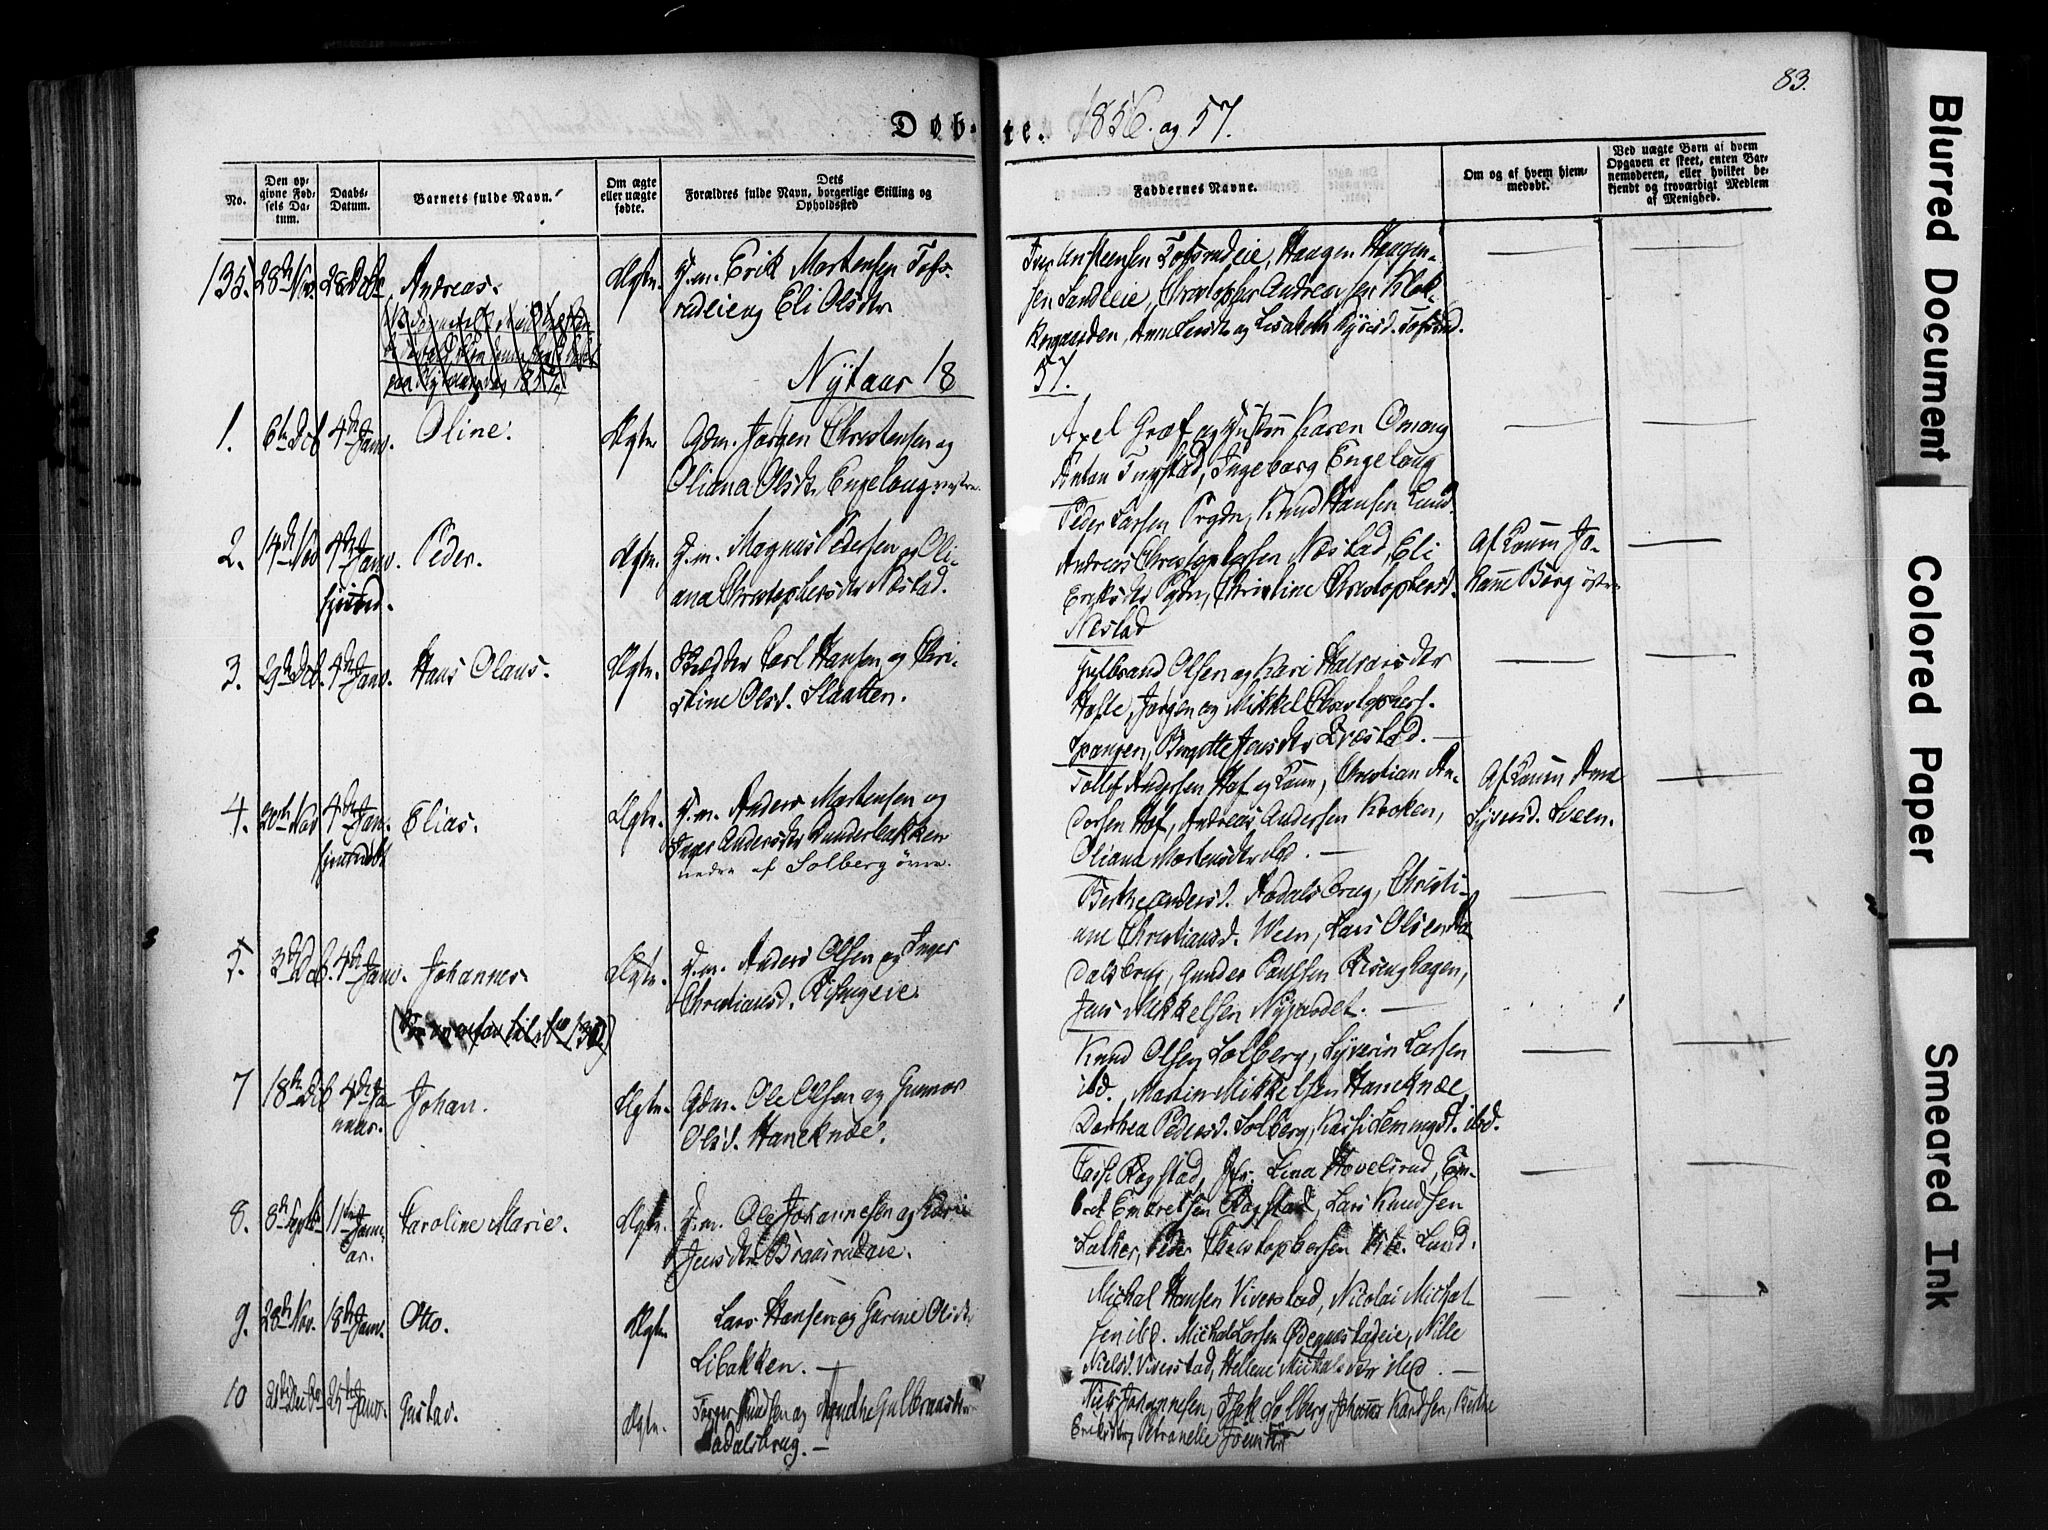 83.
Døbte. 1856. og 57.
No.
Den opgivne Fødsels Datum.
Daabs-Datum.
Barnets fulde Navn.
Om ægte eller uægte fødte.
Dets Forældres fulde Navn, borgerlige Stilling og Opholdssted
Faddernes Navne.
Om og af hvem hjemmedøbt.
Ved uægte Børn af hvem Opgaven er skeet, enten Barnemoderen, eller hvilket bekjendt og troværdigt Medlem af Menighed.
135. 28de Nov. 28 Decbr Andreas. Ægte. J.m. Erik Mortensen Tofs-
rudeie og Eli Olsdtr
Iver Ansteensen Tofsrudeie, Haagen Haagen-
sen Sandeie, Christopher Andreassen Klok-
kergaarden, Anne Larsdtr og Lisabeth Syversd. Tofsrud.
Nytaar 18
57.
1. 6te Dcb 4de Janv. Oline. Ægte. Gdm. Jørgen Christensen og
Oliana Olsdtr Engeloug vestre.
Axel Græf og Hustru Karen Omang
Anton Tingstad, Ingeborg Engeloug
Peder Larsen Prgdn, Knud Hansen Lund.
2. 14de Nov 4de Janv. Peder. Ægte. J.m. Magnus Pedersen og Oli-
hjemd.
ana Christophersdtr Næstad.
Andreas Christophersen Næstad, Eli
Eriksdtr Pgdn, Christine Christophersd.
Næstad
Af Konen Jo-
hanne Berg østre
3. 29de Dcb. 4de Janv. Hans Olaus. Ægte. Skrædder Carl Hansen og Chri-
stine Olsd. Slaatten.
Gulbrand Olsen og Kari Halvorsdtr
Hofle, Jørgen og Mikkel Christophers.
Spangen, Birgitte Jensdtr Træstad. —
4. 20de Nov 4de Jan. Elias. Ægte. J.m. Anders Mortensen og
hjemmedøbt
Inger Andersdtr Sunderbakken
nedre af Solberg øvre.
Tollef Andersen Hof og Kone, Christian An-
dersen Hof, Andreas Andersen Kroken,
Oliana Mortensdtr ibd. —
Af Konen Anne
Syversd. Sveen.
5. 3de Dcb. 4de Janv. Johannes. Ægte. J.m. Anders Olsen og Inger
Christiansd. Risengeie.
Berthe Andersd. Aadalsbrug, Christi-
ane Christiansd. Ween, Lars Olsen Aa-
dalsbrug, Gunder Paulsen Risenghagen,
Jens Mikkelsen Nyrudet. —
7 18de Dcb 4de Ja- Johan. Ægte. Gdm. Ole Olsen og Gunnor
nuar.
Olsd. Haneknæ.
Knud Olsen Solberg, Syverin Larsen
ibd., Martin Mikkelsen Haneknæ,
Dorthea Pedersd. Solberg, Kari Flemmingsd. ibd.
8. 8de Septbr 11te Janu- Karoline Marie. Ægte. J.m. Ole Johannesen og Kari
ar.
Jensdtr Braarudeie.
Lasse Rogstad, Jfr. Lina Hovelsrud, Em-
bret Embretsen Rogstad, Lars Knudsen
Sælher, Peder Christophersen Lund.
9. 28de Nov. 18de Janv. Otto. Ægte. Lars Hansen og Gurine Olsdtr
Libakken. —
Michal Hansen Viverstad, Nicolai Michal-
sen ibd. Michal Larsen Ødegnestadeie, Nille
Nielsd. Viverstad, Hellene Michalsdtr ibd. —
10 21de Decbr 25de Janv. Gustav. Ægte. Torger Knudsen og Agnethe Gulbransdtr
Aadalsbrug. —
Niels Johannesen, Isak Solberg, Johannes Knudsen, Berthe
Eriksdtr, Petronelle
Blurred Document
Colored Paper
Smeared Ink